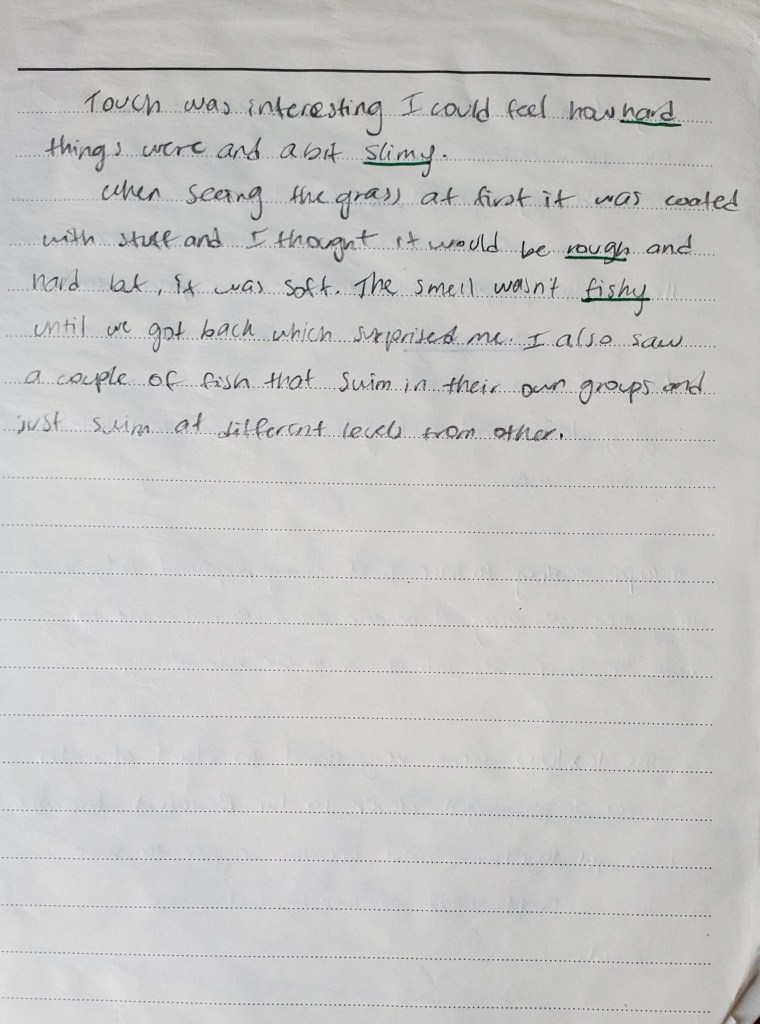 Touch was interesting I could feel how hard
things were and a bit slimy.
when seeing the grass at first it was coated
with stuff and I thought it would be rough and
hard but, it was soft. The smell wasn't fishy
until we got back which surprised me. I also saw
a couple of fish that swim in their own groups and
just swim at different levels from other.